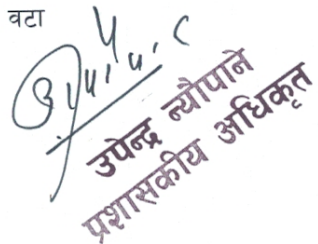 वटा
उपेन्द्र न्यौपाने
प्रशासकीय अधिकृत